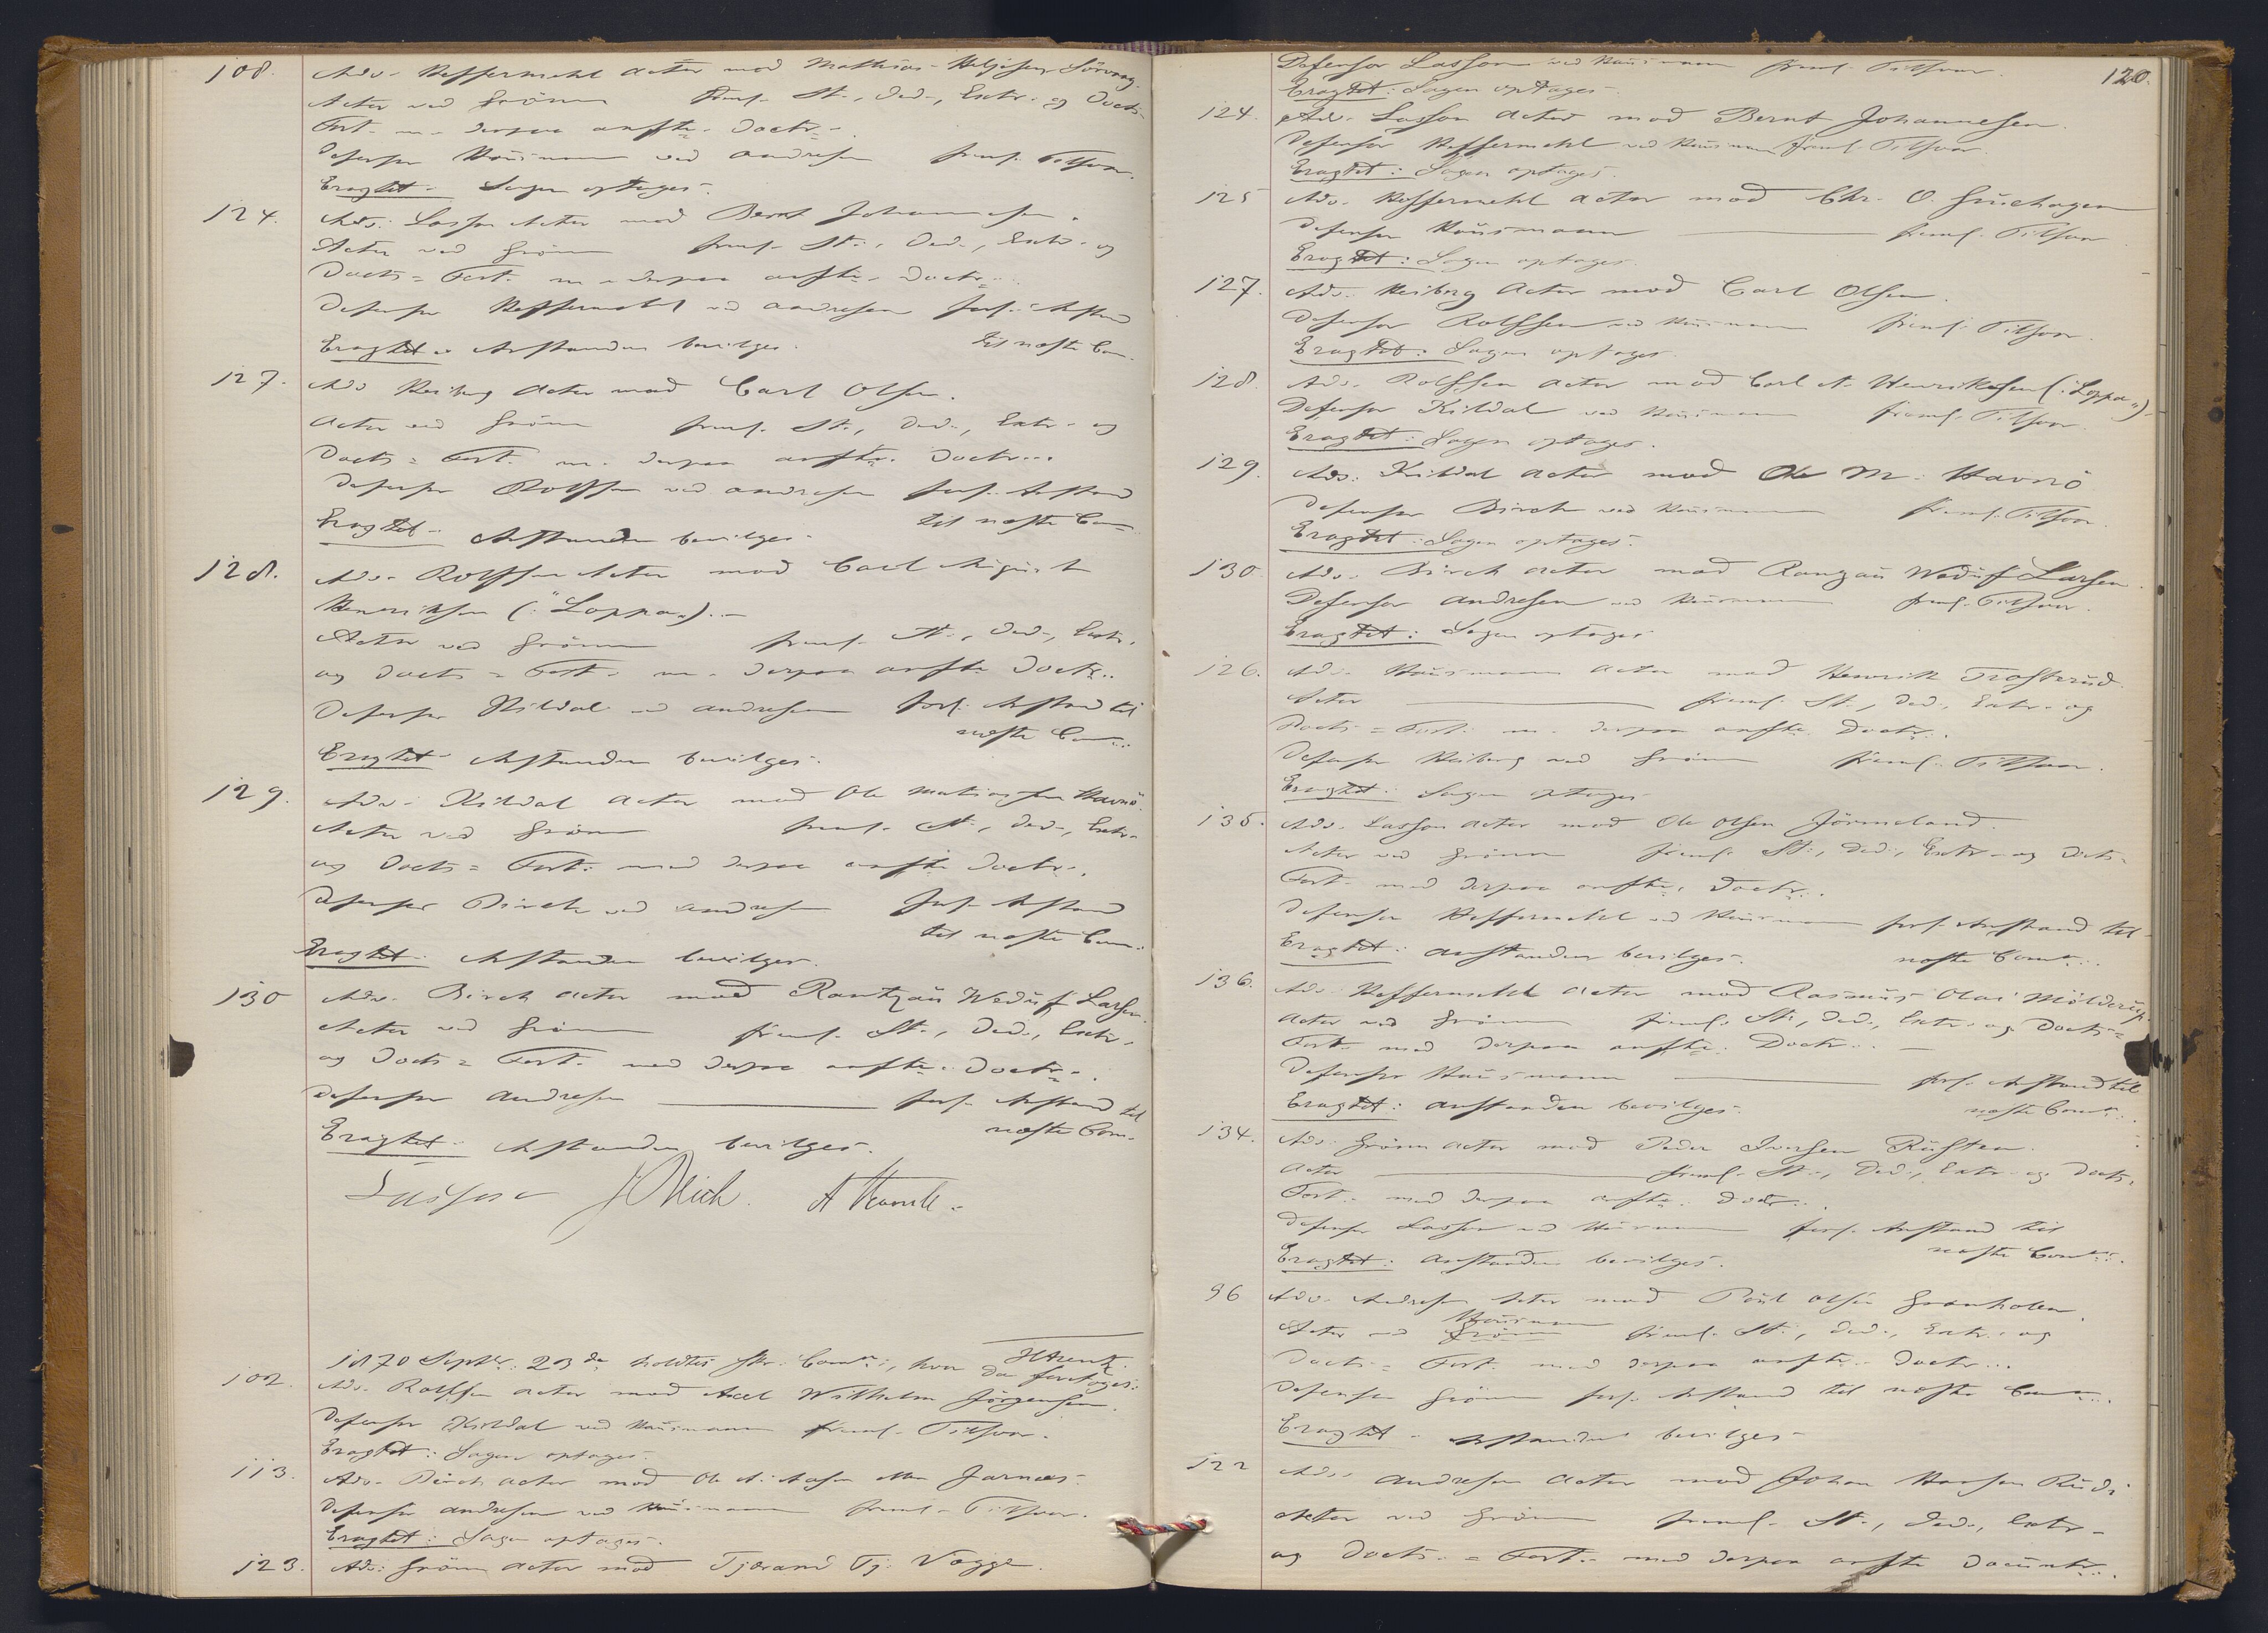 108. Adv. Heffermehl Actor mod Mathias Heljesen Sörvaag.
Actor ved Grönn freml. St., Ded., Extr. og Docts=
Fort. m. derpaa anfte. Doctr.
Defensor Hausmann ved Andresen freml. Tilsvar.
Eragtet: Sagen optages.
124. Adv. Lasson Actor mod Bernt Johannesen.
Actor ved Grönn freml. St., Ded., Extr. og
Docts= Fort. m. derpaa anfte. Doctr.
Defensor Heffermehl ved Andresen forl. Anstand
til næste Com.
Eragtet: Anstanden bevilges.
127. Adv. Heiberg Actor mod Carl Olsen.
Actor ved Grönn freml. St., Ded., Extr. og
Docts= Fort. m. derpaa anfte. Doctr.
Defensor Rolfsen ved Andresen forl. Anstand
til næste Com.
Eragtet: Anstanden bevilges.
128. Adv. Rolfsen Actor mod Carl August
Henriksen (:"Loppa":).
Actor ved Grönn freml. St., Ded., Extr.
og Docts= Fort. m. derpaa anfte Doctr.
Defensor Kildal ved Andresen forl. Anstand til
næste Com.
Eragtet: Anstanden bevilges.
129. Adv. Kildal Actor mod Ole Matiassen Havnö.
Actor ved Grönn freml. St., Ded., Extr.
og Docts= Fort. med derpaa anfte Doctr.
Defensor Birch ved Andresen forl. Anstand
til næste Com.
Eragtet: Anstanden bevilges.
130 Adv. Birch Actor mod Rantzau Weduf Larsen.
Actor ved Grönn freml. St., Ded., Extr.
og Docts= Fort. med derpaa anfte. Doctr.
Defensor Andresen forl. Anstand til
næste Com.
Eragtet: Anstanden bevilges.
Lasson
1870 Septbr. 23de holdtes Com., hvor da foretoges:
102. Adv. Rolfsen Actor mod Axel Wilhelm Jörgensen.
Defensor Kildal ved Hausmann freml. Tilsvar.
Eragtet: Sagen optages.
113. Adv. Birch Actor mod Ole A. Jarnæs.
Defensor Andresen ved Hausmann freml. Tilsvar.
Eragtet: Sagen optages.
123. Adv. Grönn Actor mod Tjöran Tj. Vagge.
120.
Defensor Lasson ved Hausmann freml. Tilsvar.
Eragtet: Sagen optages.
124. Adv. Lasson Actor mod Bernt Johannesen.
Defensor Heffermehl ved Hausmann freml. Tilsvar.
Eragtet: Sagen optages.
125 Adv. Heffermehl Actor mod Chr. O. Gruehagen
Defensor Hausmann freml. Tilsvar
Eragtet: Sagen optages.
127. Adv. Heiberg Actor mod Carl Olsen.
Defensor Rolfsen ved Hausmann freml. Tilsvar.
Eragtet: Sagen optages.
128. Adv. Rolfsen Actor mod Carl A. Henriksen (:"Loppa":)
Defensor Kildal ved Hausmann freml. Tilsvar.
Eragtet: Sagen optages.
129. Adv. Kildal Actor mod Ole M. Havnö
Defensor Birch ved Hausmann freml. Tilsvar.
Eragtet: Sagen optages.
130 Adv. Birch Actor mod Ranzau Weduf Larsen.
Defensor Andresen ved Hausmann freml. Tilsvar.
Eragtet: Sagen optages
126. Adv. Hausmann Actor mod Henrik Trosterud.
Actor freml. St., Ded., Extr. og
Docts= Fort. m. derpaa anfte. Doctr.
Defensor Heiberg ved Grönn freml. Tilsvar.
Eragtet: Sagen optages
135. Adv. Lasson Actor mod Ole Olsen Jörmeland.
Actor ved Grönn freml. St., Ded., Extr. og Docts=
Fort. med derpaa anfte. Doctr.
Defensor Heffermehl ved Hausmann forl. Anstand til
næste Com.
Eragtet: Anstanden bevilges.
136. Adv. Heffermehl Actor mod Rasmus Olai Mölderup.
Actor ved Grönn freml. St., Ded., Extr. og Docts=
Fort. med derpaa anfte. Doctr.
Defensor Hausmann forl. Anstand til
næste Com.
Eragtet: Anstanden bevilges.
134. Adv. Grönn Actor mod Peder Iversen Rusten.
Actor freml. St., Ded., Extr. og Docts=
Fort. med derpaa anfte. Doctr.
Defensor Lasson ved Hausmann forl. Anstand til
næste Com.
Eragtet: Anstanden bevilges.
96 Adv. Andresen Actor mod Poul Olsen Granholen.
Hausmann
Actor ved Grönn freml. St., Ded., Extr. og
Docts= Fort. med derpaa anfte. Doctr.
Defensor Grönn forl. Anstand til næste Com.
Eragtet: Anstanden bevilges.
122 Adv. Andresen Actor mod Johan Hansen Rud.
Actor ved Grönn freml. St., Ded., Extr.
og Docts.= Fort. med derpaa anfte Documtr.